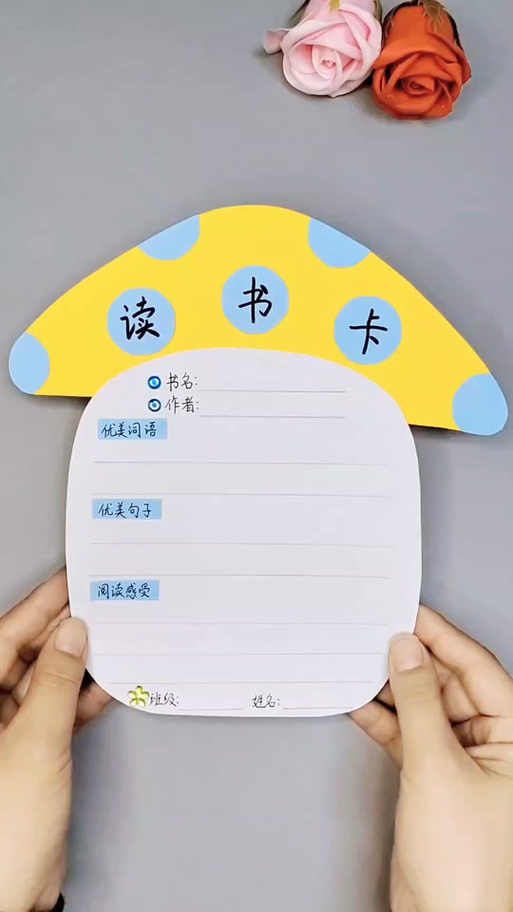 读书卡
书名:
作者:
优美词语
优美句子
阅读感受
班级: 姓名: